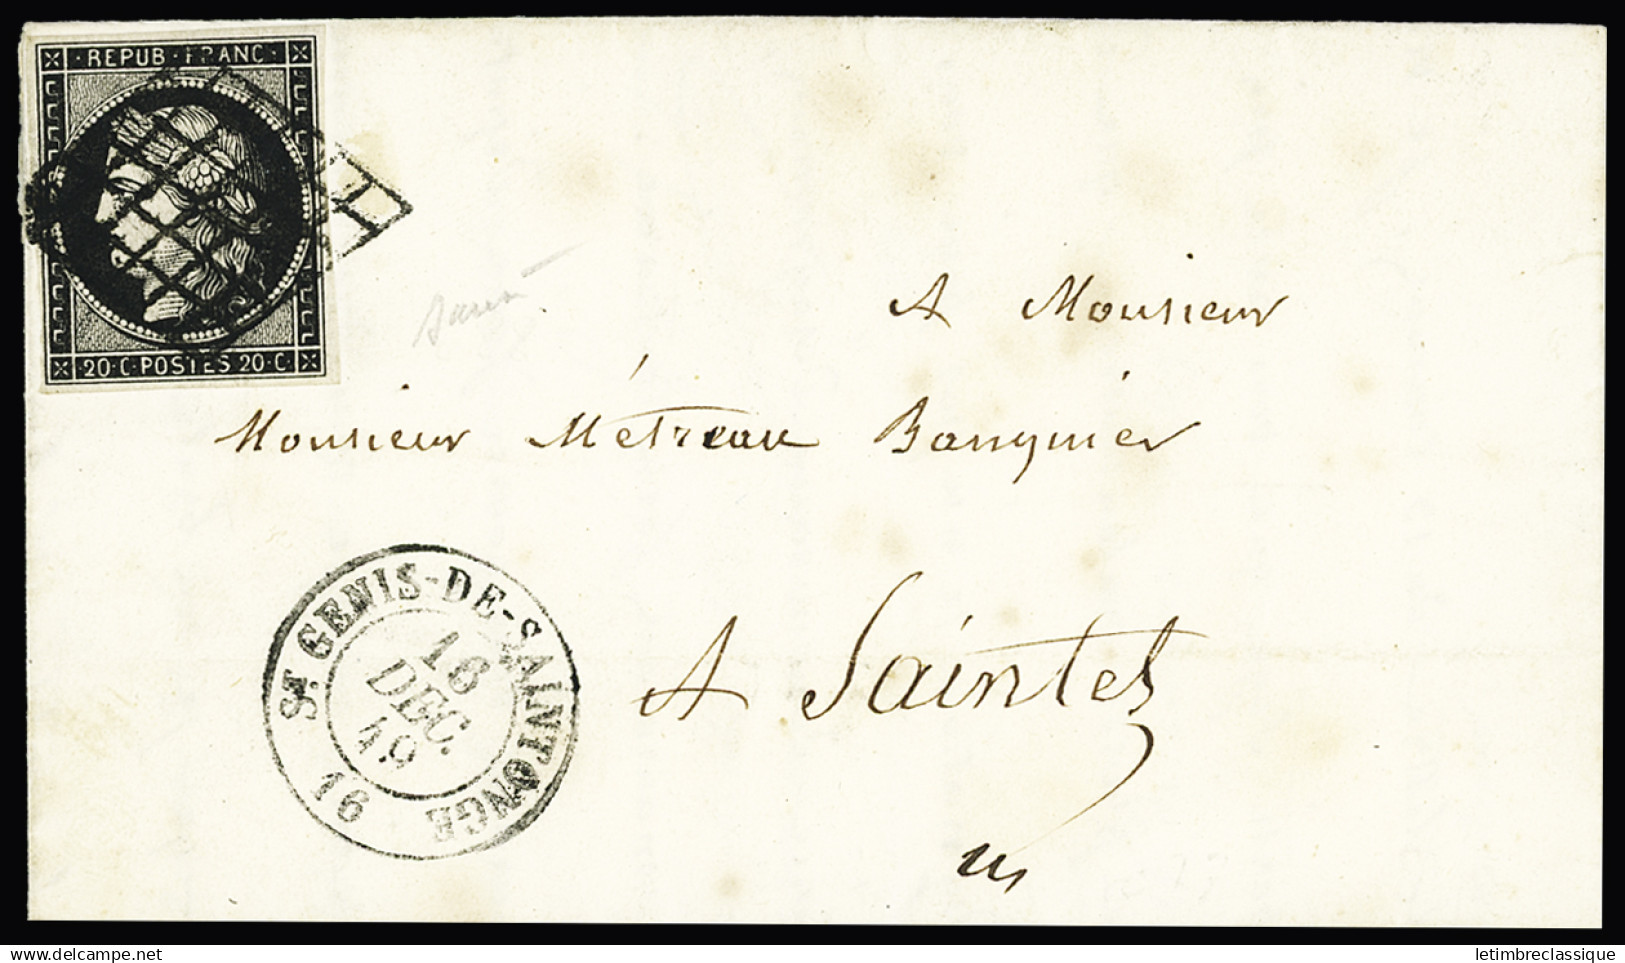 REPUB · FRANC ·
20 · C · POSTES 20 · C ·
A Monsieur
Monsieur Métreau Banquier
ST GENIS-DE-SAINTONGE
16
DEC.
49
16
A Saintes
delcampe.net
letimbreclassique